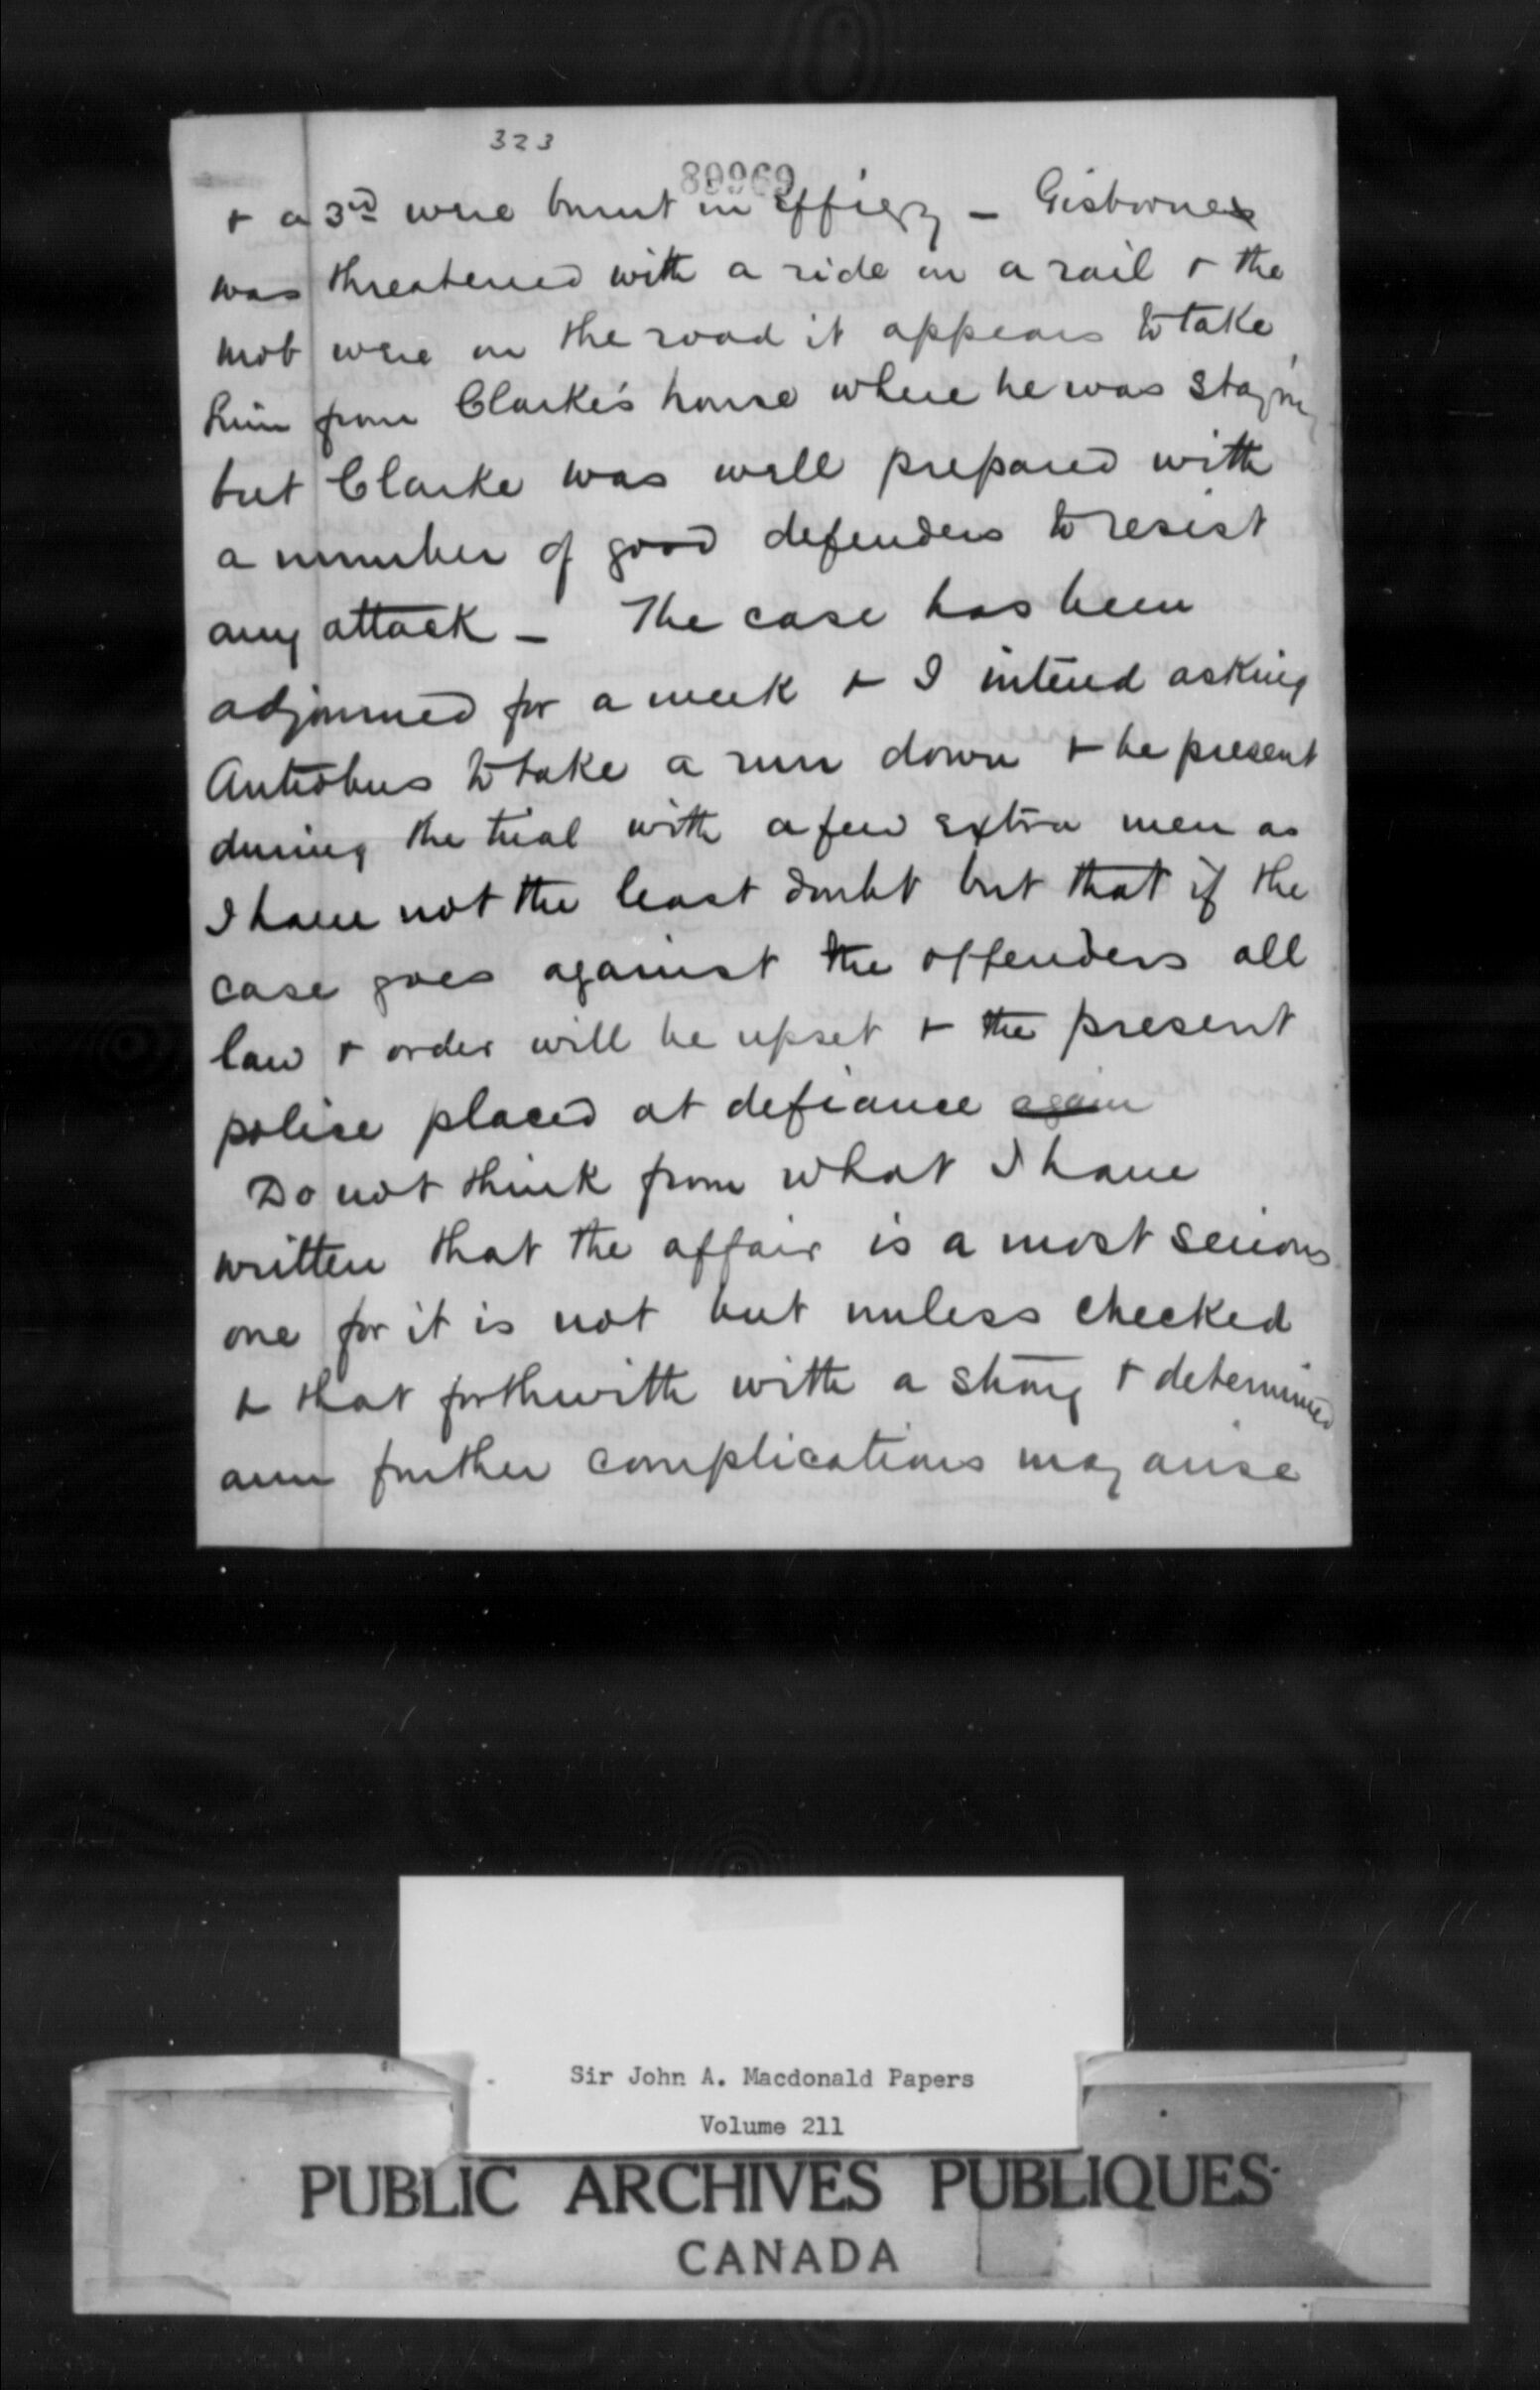 323
89969
& a 3rd were burnt in Effigy - Gisborne
was threatened with a ride on a rail & the
mob were on the road it appears to take
him from Clarke's house where he was staying
but Clarke was well prepared with
a number of good defenders to resist
any attack - The case has been
adjourned for a week & I intend asking
Antrobus to take a run down & be present
during the trial with a few extra men as
I have not the least doubt but that if the
case goes against the offenders all
law & order will be upset & the present
police placed at defiance again
Do not think from what I have
written that the affair is a most serious
one for it is not but unless checked
& that forthwith with a strong & determined
arm further complications may arise
Sir John A. Macdonald Papers
Volume 211
PUBLIC ARCHIVES PUBLIQUES
CANADA